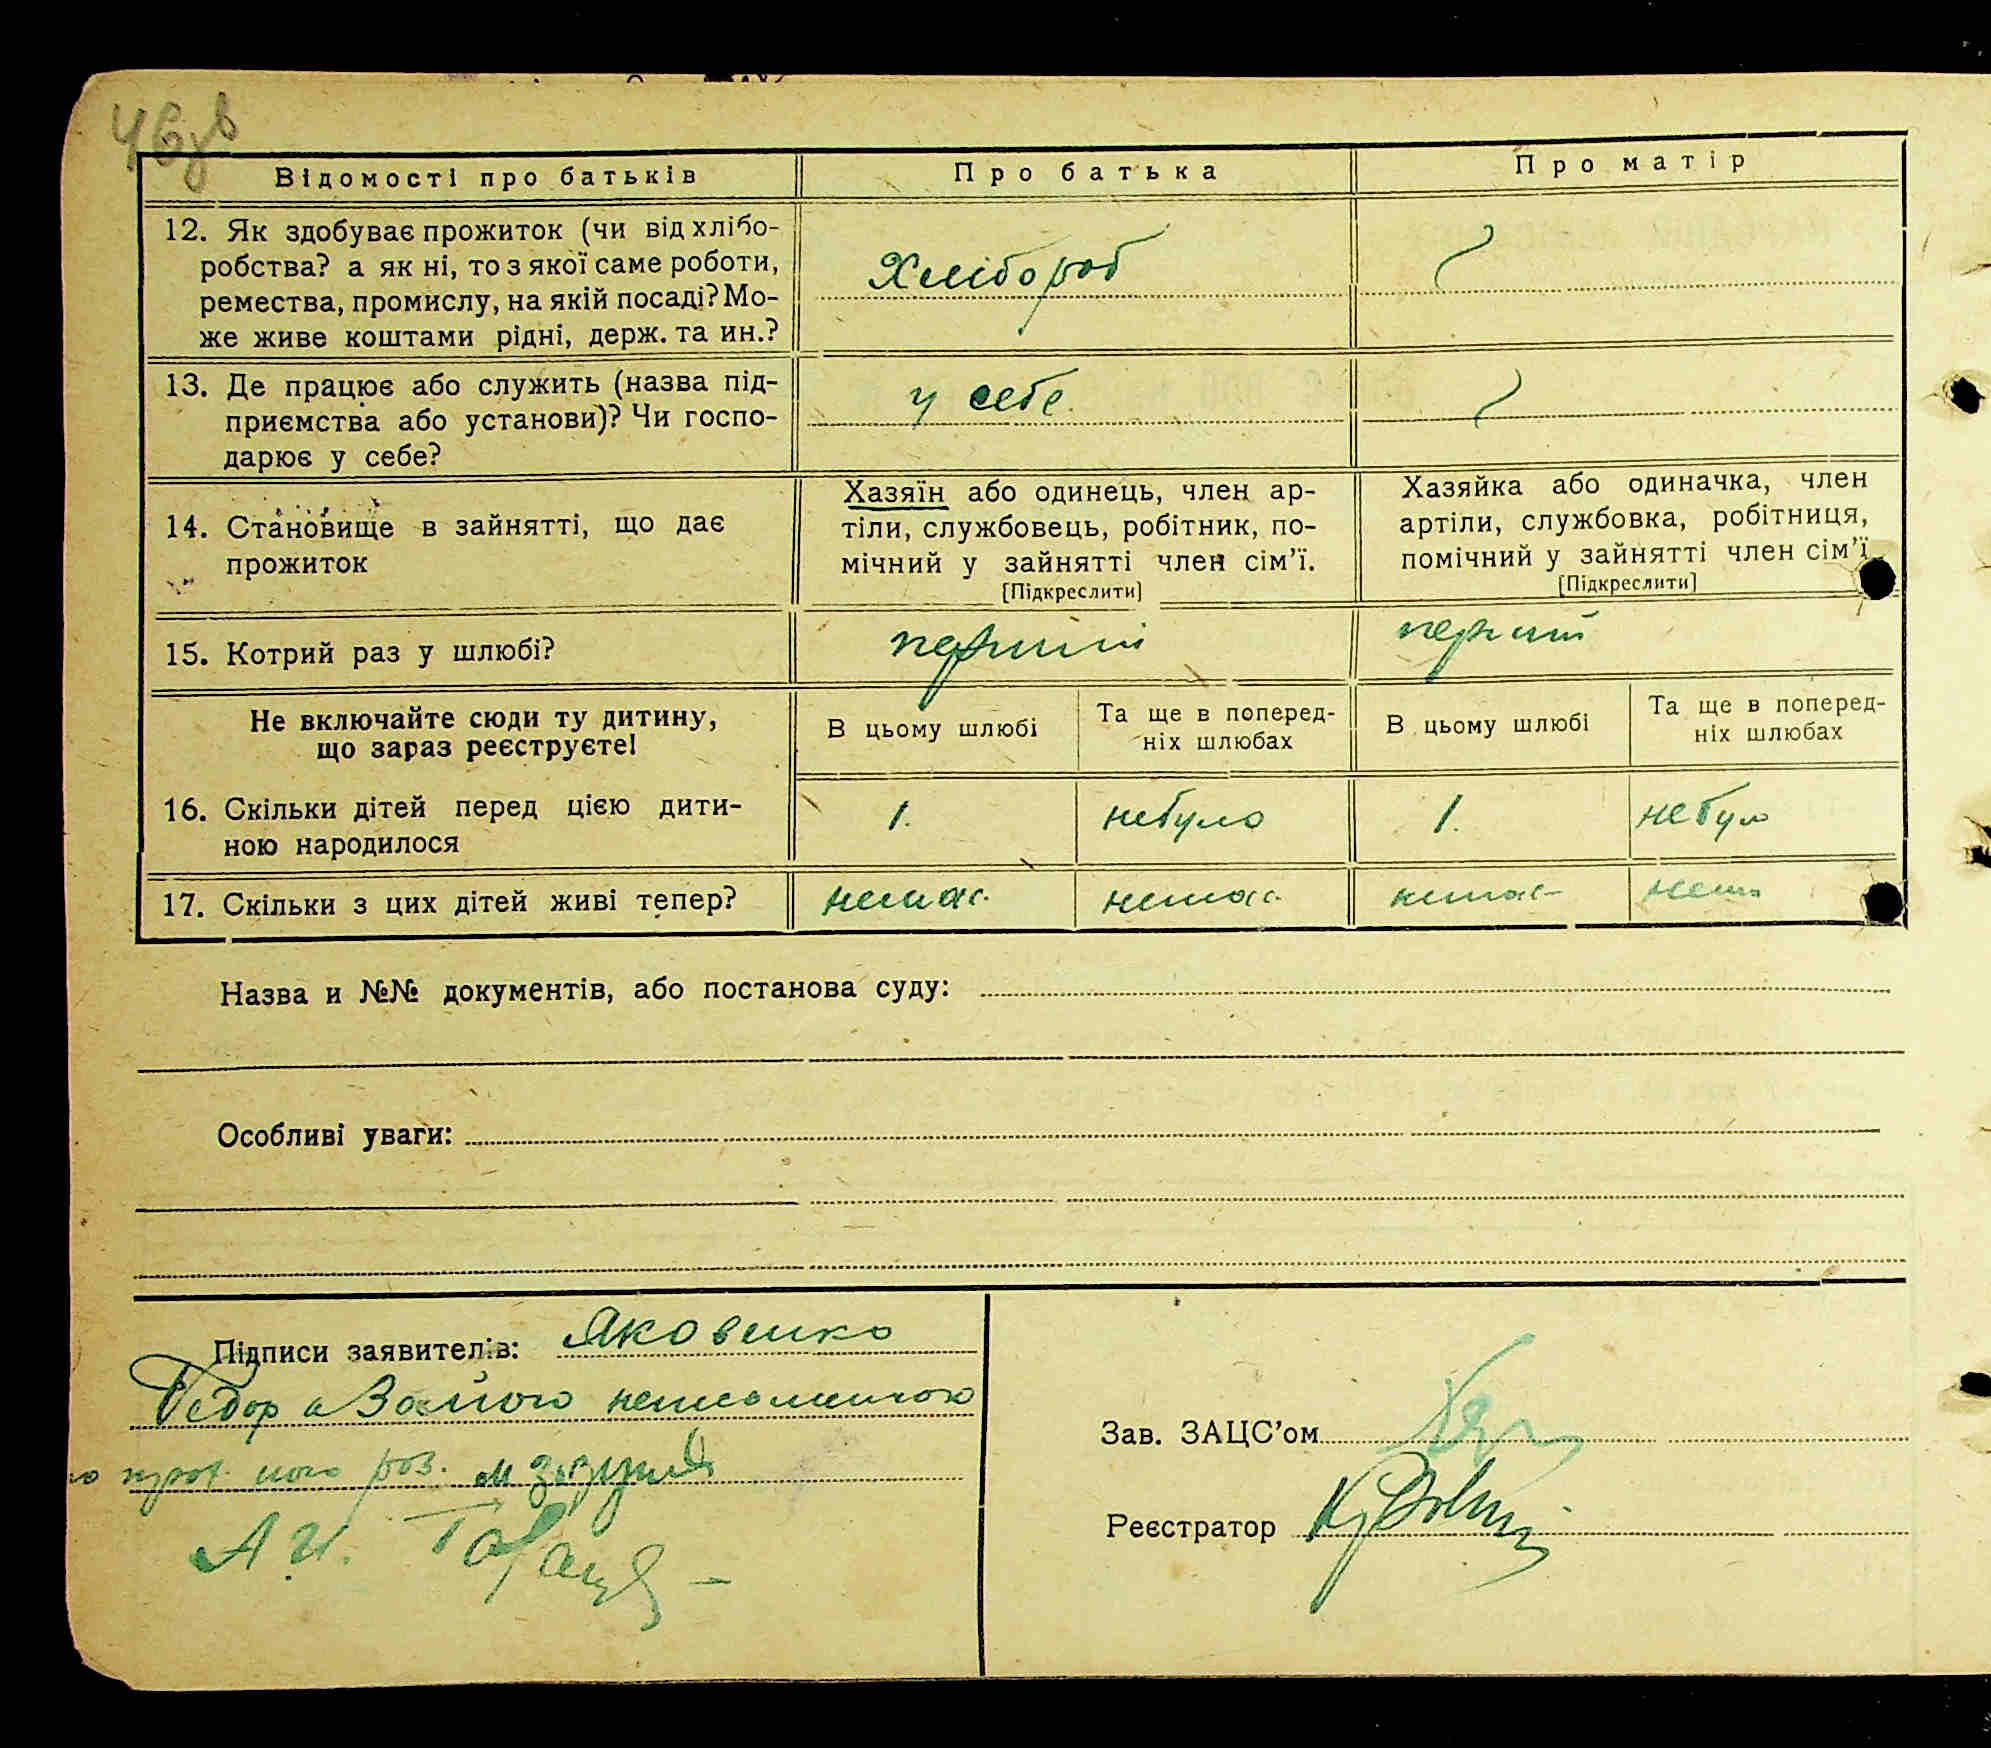 46зв
Відомості про батьків
Про батька
Про матір
12. Як здобуває прожиток (чи від хлібо-
робства? а як ні, то з якої саме роботи,
ремества, промислу, на якій посаді? Мо-
же живе коштами рідні, держ. та ин.?
Хлібороб
13. Де працює або служить (назва під-
приємства або установи)? Чи госпо-
дарює у себе?
у себе
14. Становище в зайнятті, що дає
прожиток
Хазяїн або одинець, член ар-
тіли, службовець, робітник, по-
мічний у зайнятті член сім'ї.
[Підкреслити]
Хазяйка або одиначка, член
артіли, службовка, робітниця,
помічний у зайнятті член сім'ї
[Підкреслити]
15. Котрий раз у шлюбі?
перший
перший
Не включайте сюди ту дитину,
що зараз реєструєте!
В цьому шлюбі
Та ще в поперед-
ніх шлюбах
В цьому шлюбі
Та ще в поперед-
ніх шлюбах
16. Скільки дітей перед цією дити-
ною народилося
1.
небуло
1.
небуло
17. Скільки з цих дітей живі тепер?
немає
немає
немає
нема
Назва и №№ документів, або постанова суду:
Особливі уваги:
Підписи заявителів: Яковенко
Федор а За його неписьменого
його роз.
А И.
Зав. ЗАЦС'ом
Реєстратор